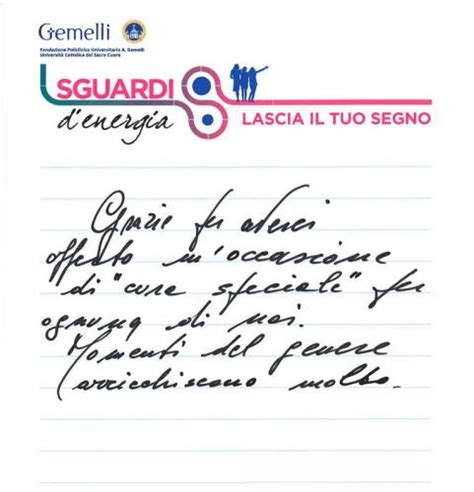 Gemelli
Fondazione Policlinico Universitario A. Gemelli
Università Cattolica del Sacro Cuore
SGUARDI
d'energia
LASCIA IL TUO SEGNO
Grazie per averci
offerto un'occasione
di "cura speciale" per
ognuna di noi.
Momenti del genere
arricchiscono molto.